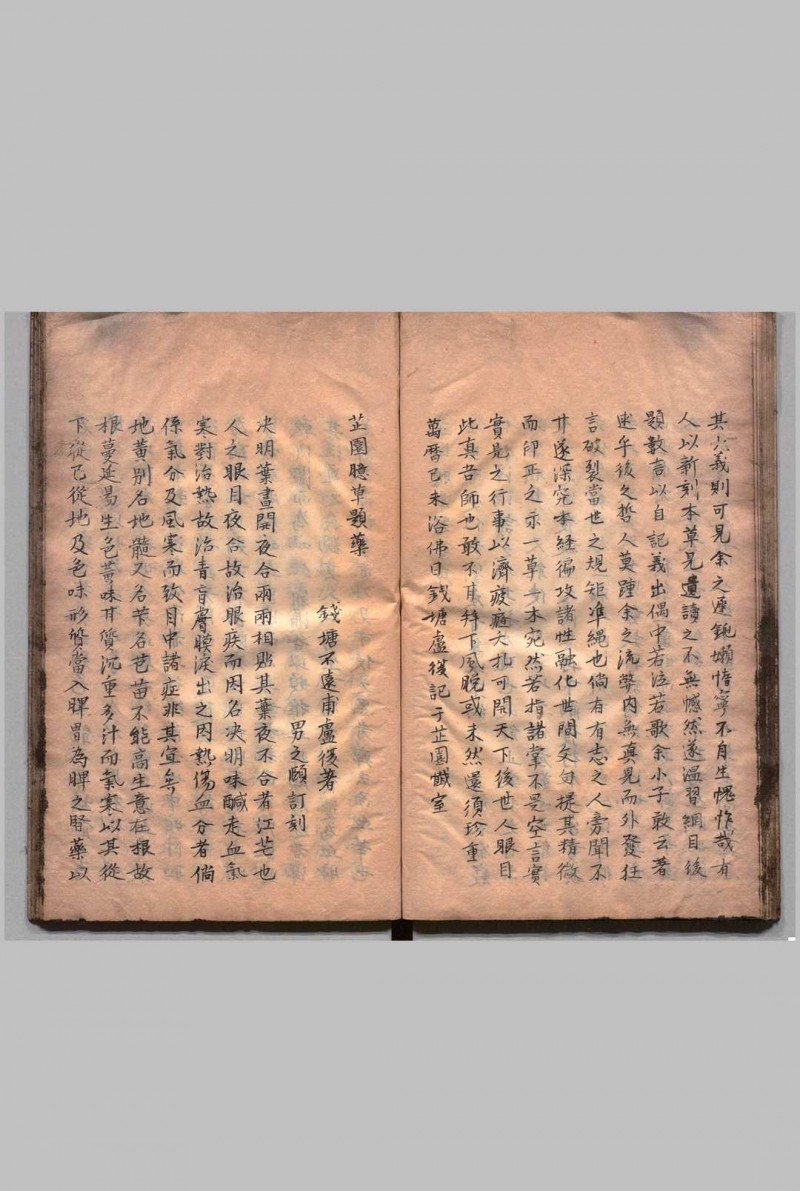 其六義則可見余之遲鈍嬾惰寧不自生愧怍哉有
人以新刻本草見遺讀之不無憾然遂溫習綱目後
題數言以自記義出偶中若泣若歌余小子敢云著
述乎後之哲人莫踵余之流弊內無真見而外發狂
言破裂當世之規矩準繩也倘有有志之人旁聞不
廿遂深究本經徧攻諸性融化世間文句提其精微
而印正之示一草一木宛然若指諸掌不是空言實
實見之行事以濟疲癃大扎可開天下後世人眼目
此真吾師也敢不甘拜下風晚或未然還須珍重
萬曆己未浴佛日錢塘盧復記于芷園懺室
芷園臆草題藥
錢塘不遠甫盧復著
男之頤訂刻
决明葉晝開夜合兩兩相貼其葉夜不合者江芒也
人之眼目夜合故治眼疾而因名决明味鹹走血氣
寒對治熱故治青盲膚瞙淚出之因熱傷血分者倘
係氣分及風寒而致目中諸症非其宜矣
地黃别名地髓又名芐名芑苗不能高生意在根故
根蔓延易生色黃味甘質沉重多汁而氣寒以其從
下從己從地及色味形質當入脾胃為脾之腎藥以